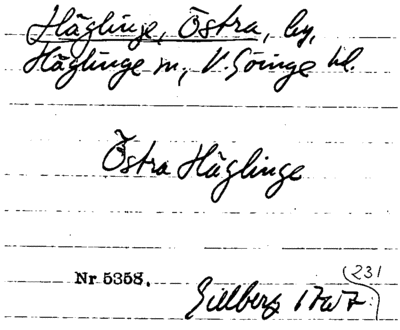 Häglinge, Östra, by,
Häglinge sn, V. Göinge hd.
Östra Häglinge
231
Nr 5358.
Gillberg 1767